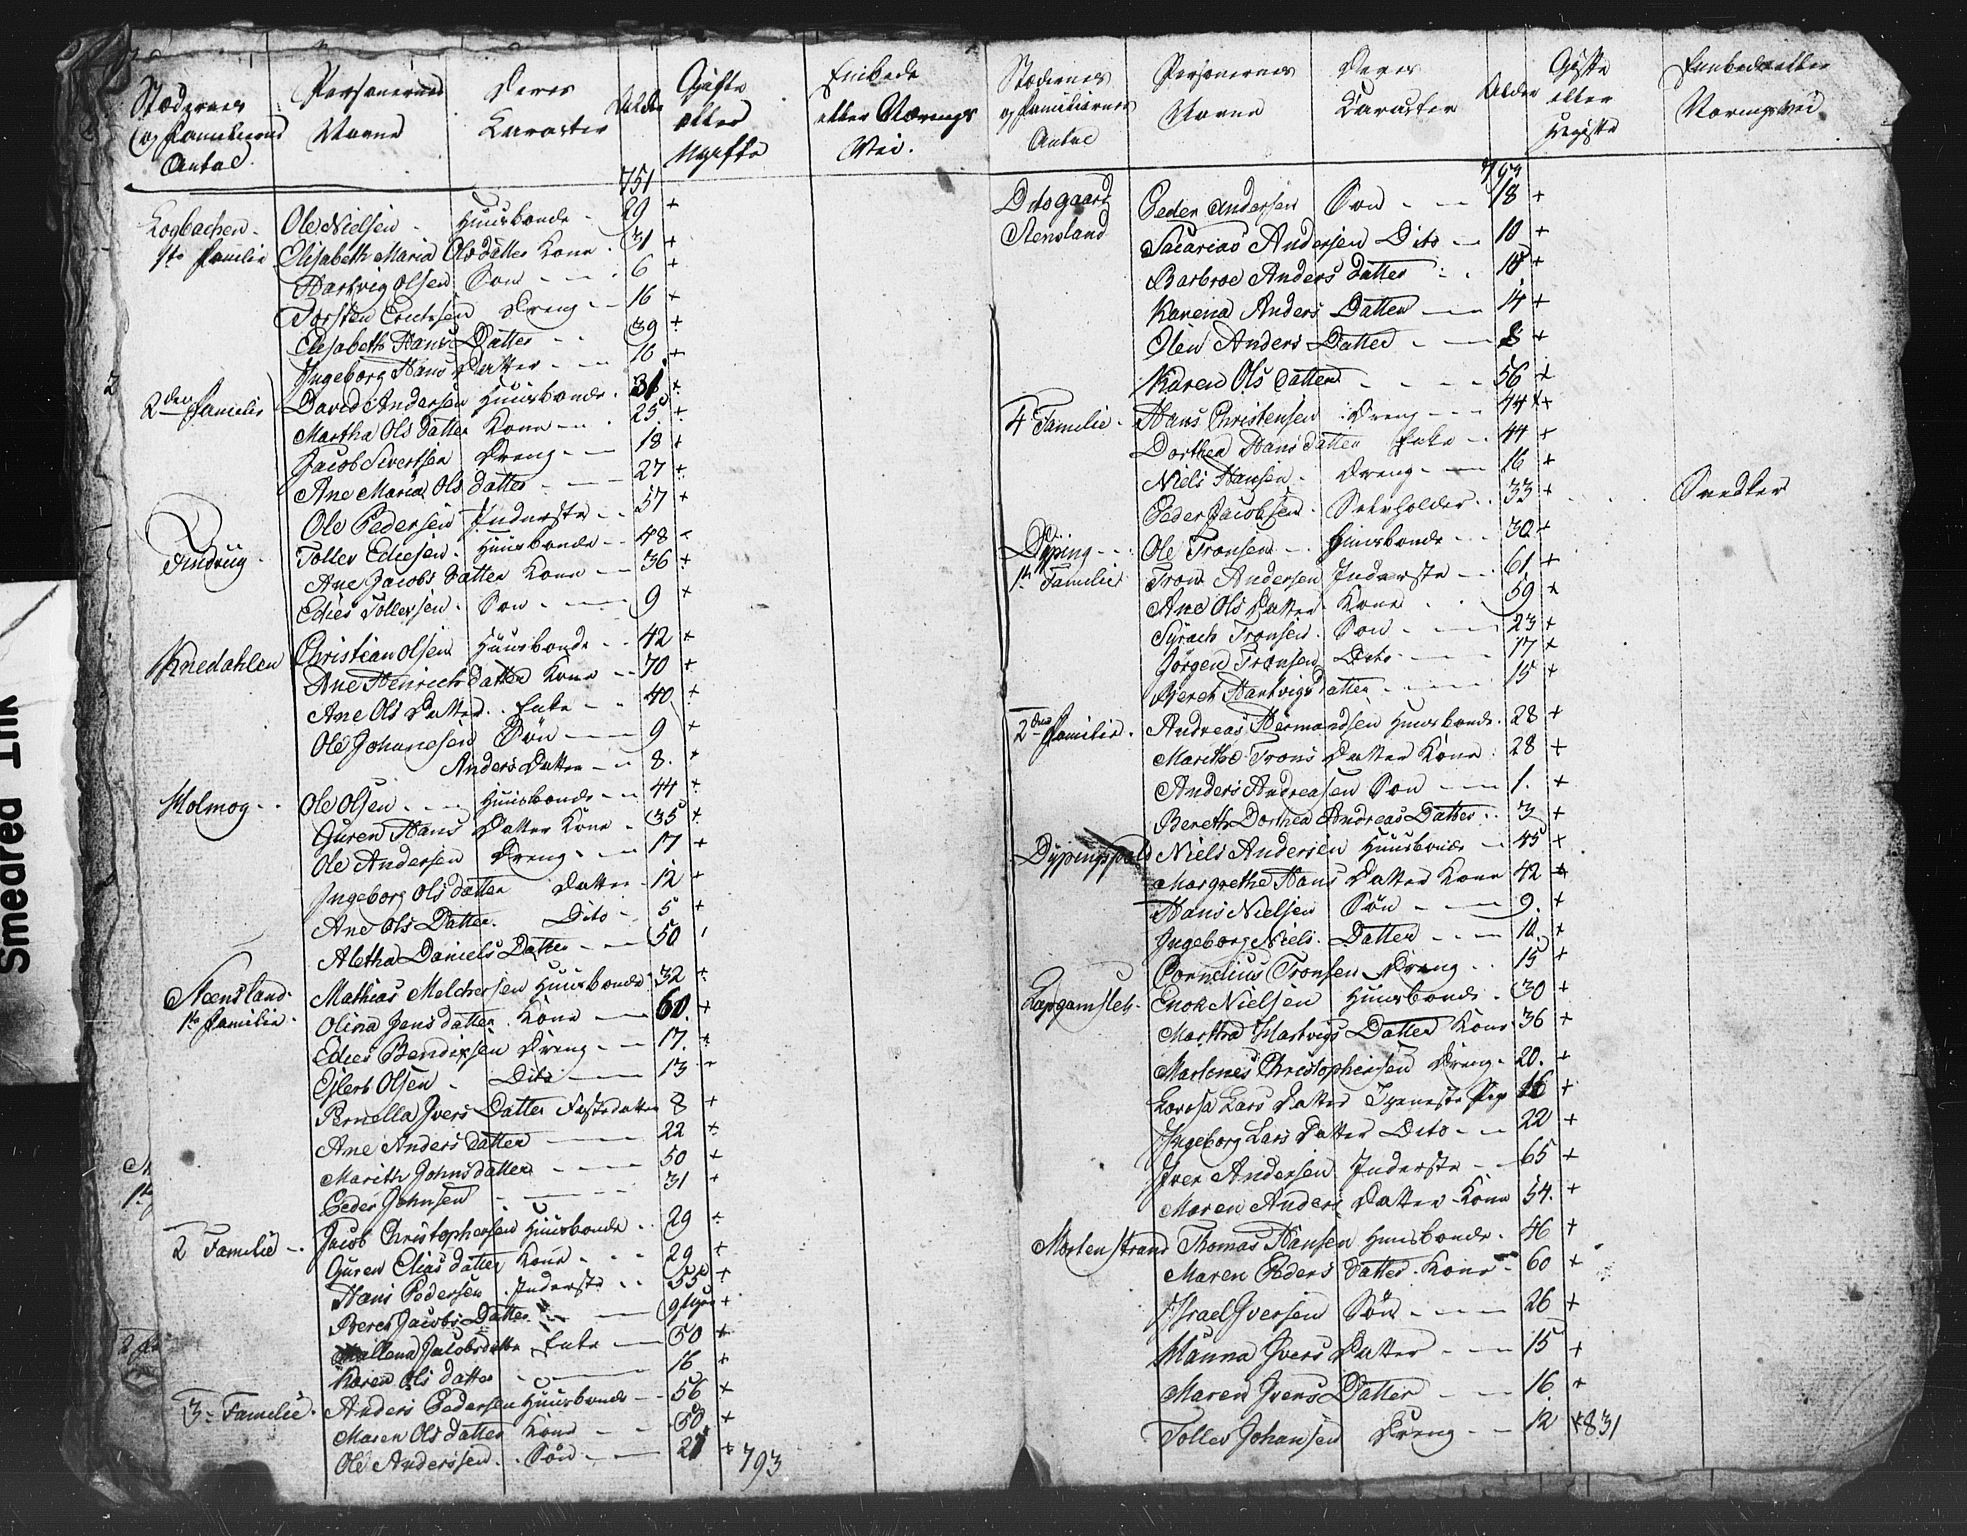 Stædernes og Familiernes Antal
Personernes Navne
Deres Karacter
Alder
Gifte eller Ugifte
Embede eller Nærings Vei.
751
Ole Nielsen Huusbonde 29 +
1te Familie Elisabeth Maria Olsdatter Kone 31 +
Hartvig Olsen Søn 6 +
Torsten Erichsen Dreng 16 +
Elisabeth Hans Datter 39 +
Ingeborg Hans Datter 16 +
2den Familie David Andersen Huusbonde 31 +
Martha Ols datter Kone 25 +
Jacob Sivertsen Dreng 18 +
Ane Maria Ols datter 27 +
Ole Pedersen Inderste 57 +
Toller Ediesen Huusbonde 48 +
Ane Jacobs datter Kone 36 +
Edies Tollersen Søn 9 +
Knedahlen Christian Olsen Huusbonde 42 +
Ane Henrichsdatter Kone 70 +
Ane Ols Datter Enke 40 +
Ole Johanesen Søn 9 +
Anders Datter 8 +
Holmog Ole Olsen Huusbonde 44 +
Guren Hans Datter Kone 35 +
Ole Andersen Dreng 17 +
Ingeborg Ols datter Datter 12 +
Ane Ols Datter Dito 5 +
Aletha Daniels Datter 50
Steensland 1te Familie Mathias Melchersen Huusbonde 32 +
Olina Jens datter Kone 60 +
Edies Bendixsen Dreng 17 +
Ejlert Olsen Dito 13
Pernella Ivers Datter Fosterdatter 8 +
Ane Anders datter 22 +
Marith Johnsdatter 50 +
Peder Johnsen 31 +
2 Familie Jacob Christophersen Huusbonde 29 +
Guren Elias datter Kone 29 +
Hans Pedersen Inderste 55 +
Beret Jacobs Datter +
Jacobsdatter Enke 50 +
Karen Ols datter 16 +
3 Familie Anders Pedersen Huusbonde 56 +
Maren Ols datter Kone 50 +
Ole Andersen Søn 21 + 793
Stædernes og Familiernes Antal
Personernes Navne
Deres Karacter
Alder
Gifte eller Ugifte
Embede eller Næringsvei
793
Ditogaard Peder Andersen Søn 18 +
Stensland Sacarias Andersen Dito 10 +
Barbroe Anders datter +
Karena Anders Datter 14 +
Olen Anders Datter 8 +
Karen Ols datter 56 +
4 Familie Hans Christensen Dreng 44 +
Dorthea Hans datter Enke 44 +
Niels Hansen Dreng 16 +
Peder Jacobsen Selvholder 33 + Snedker
Dyping Ole Tronsen Huusbonde 30 +
1te Familie Tron Andersen Inderste 61 +
Ane Ols Datter Kone 59 +
Syrach Tronsen Søn 23 +
Jørgen Tronsen Dito 17 +
Beret Hartvigs datter 15 +
2den Familie Andreas Hermandsen Huusbonde 28 +
Marithe Trons Datter Kone 28 +
Anders Andreasen Søn 1 +
Bereth Dorthea Andreas Datter 3 +
Niels Andersen Huusbonde 45 +
Margrethe Hans Datter Kone 42 +
Hans Nielsen Søn 9 +
Ingeborg Niels Datter +
Cornelius Tronsen Dreng 15 +
Enok Nielsen Huusbonde 30 +
Martha Hartvigs Datter Kone 36 +
Christophersen Dreng 20 +
Lovisa Lars Datter Tieneste Pige 16 +
Ingeborg Lars Datter Dito 22 +
Iver Andersen Inderste 65 +
Maren Anders Datter Kone 54 +
Mortenstrand Thomas Hansen Huusbonde 46 +
Maren Peders datter Kone 60 +
Israel Iversen Søn 26 +
Manna Ivers Datter 15 +
Maren Ivers Datter 16 +
Toller Johansen Dreng 12 + 831
Smeared Ink